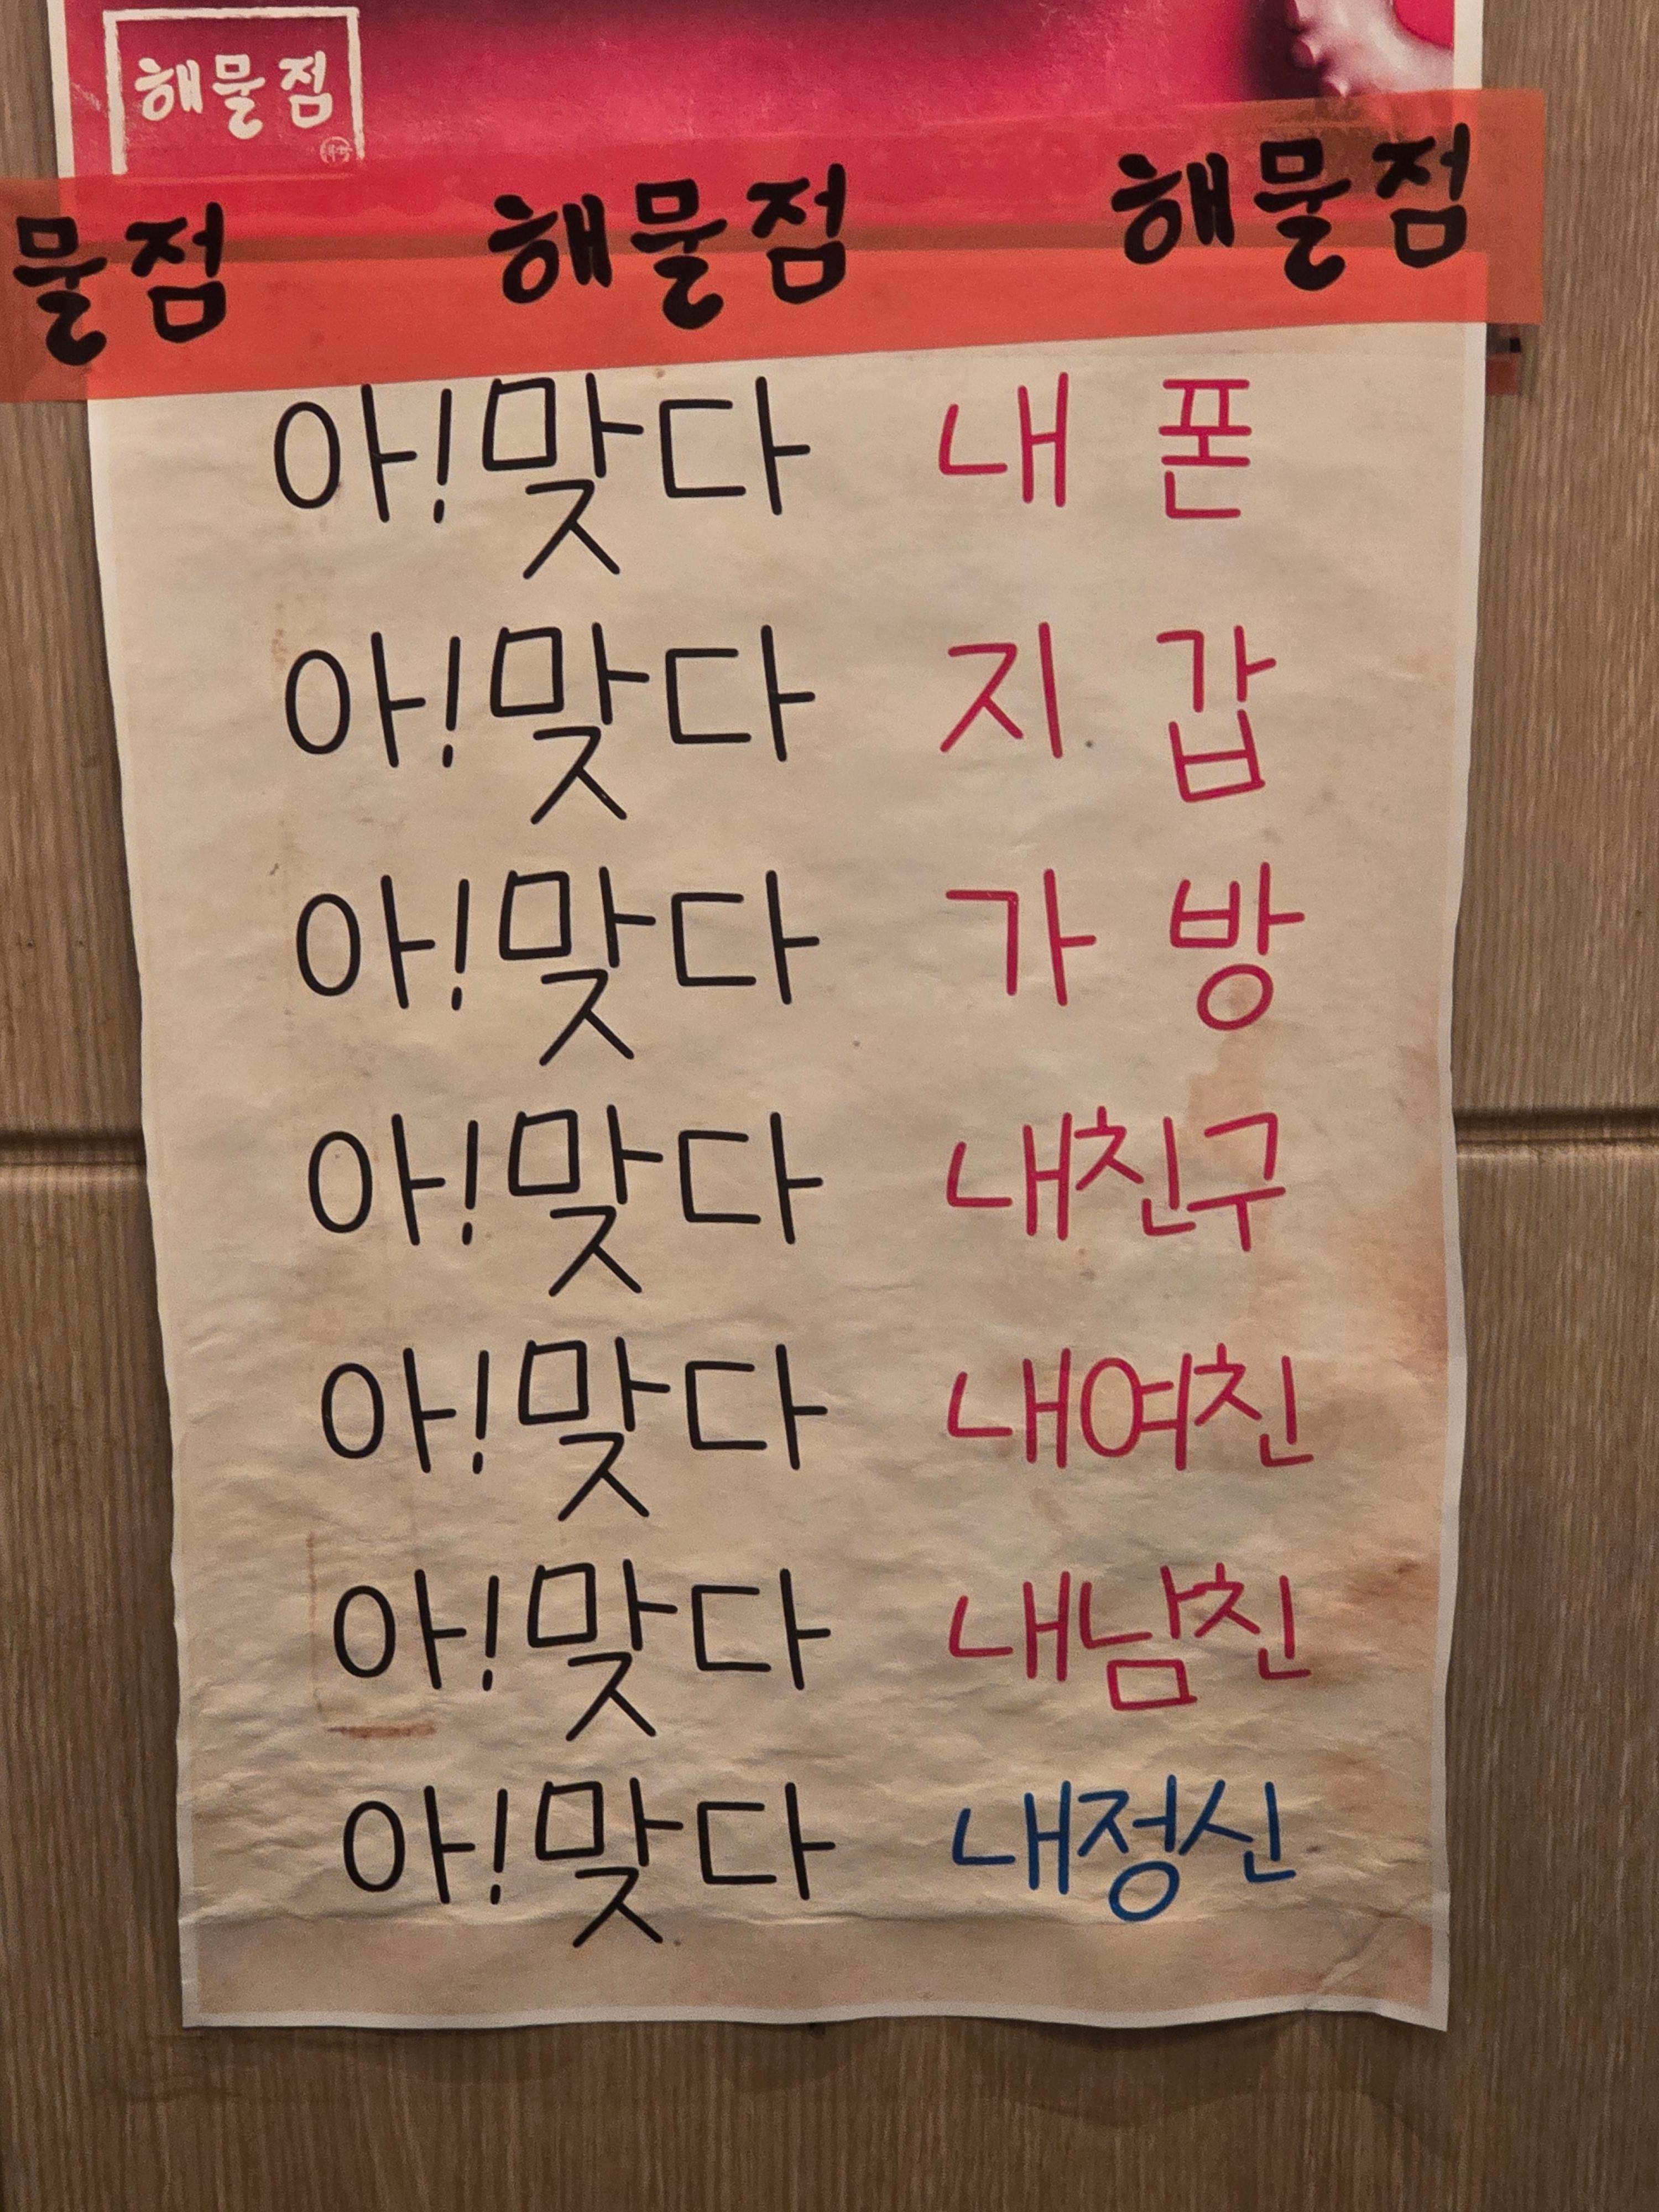 해물점
물점 해물점 해물점
아!맞다 내 폰
아!맞다 지 갑
아!맞다 가 방
아!맞다 내친구
아!맞다 내여친
아!맞다 내남친
아!맞다 내정신